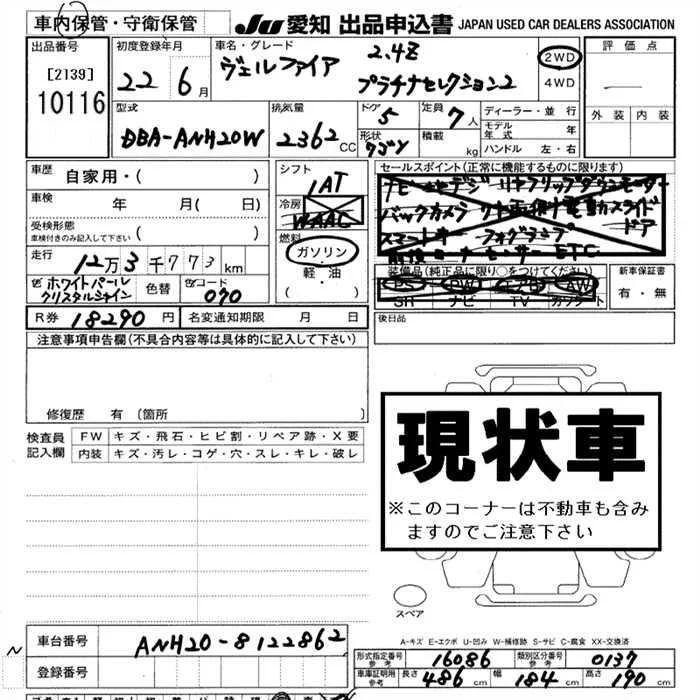 車内保管・守衛保管
JU 愛知 出品申込書 JAPAN USED CAR DEALERS ASSOCIATION
出品番号
[2139]
10116
初度登録年月
22 6月
車名・グレード
ヴェルファイア
2.4Z
プラチナセレクション2
2WD
4WD
評価点
外装 内装
型式
DBA-ANH20W
排気量
2362CC
ドア
5
形状
ワゴン
定員
7人
積載
kg
ディーラー・並行
モデル年式 年
ハンドル 左・右
車歴 自家用・( )
車検 年 月( 日)
受検形態
車検付きのみ記入して下さい ( )
走行 12万3千773km
ホワイトパール
クリスタルシャイン
色替
カラーコード
070
シフト
IAT
冷房
WAAC
燃料
ガソリン
軽・油
( )
セールスポイント(正常に機能するものに限ります)
バックカメラ
スマートキー フォグランプ
ドア
ETC
装備品(純正品に限り○をつけてください)
PS PW エアB AW
SR ナビ TV カワシート
新車保証書
有・無
R券 18290円 名変通知期限 月 日
後日品
注意事項申告欄(不具合内容等は具体的に記入して下さい)
修復歴 有 〔箇所 〕
検査員
記入欄
FW キズ・飛石・ヒビ割・リペア跡・X要
内装 キズ・汚レ・コゲ・穴・スレ・キレ・破レ
現状車
※このコーナーは不動車も含み
ますのでご注意下さい
スペア
A-キズ E-エクボ U-凹み W-補修跡 S-サビ C-腐食 XX-交換済
車台番号 ANH20-8122862
登録番号
形式指定番号
参考
16086
類別区分番号
参考
0137
車庫証明用
参考
長さ 486cm 幅 184cm 高さ 190cm